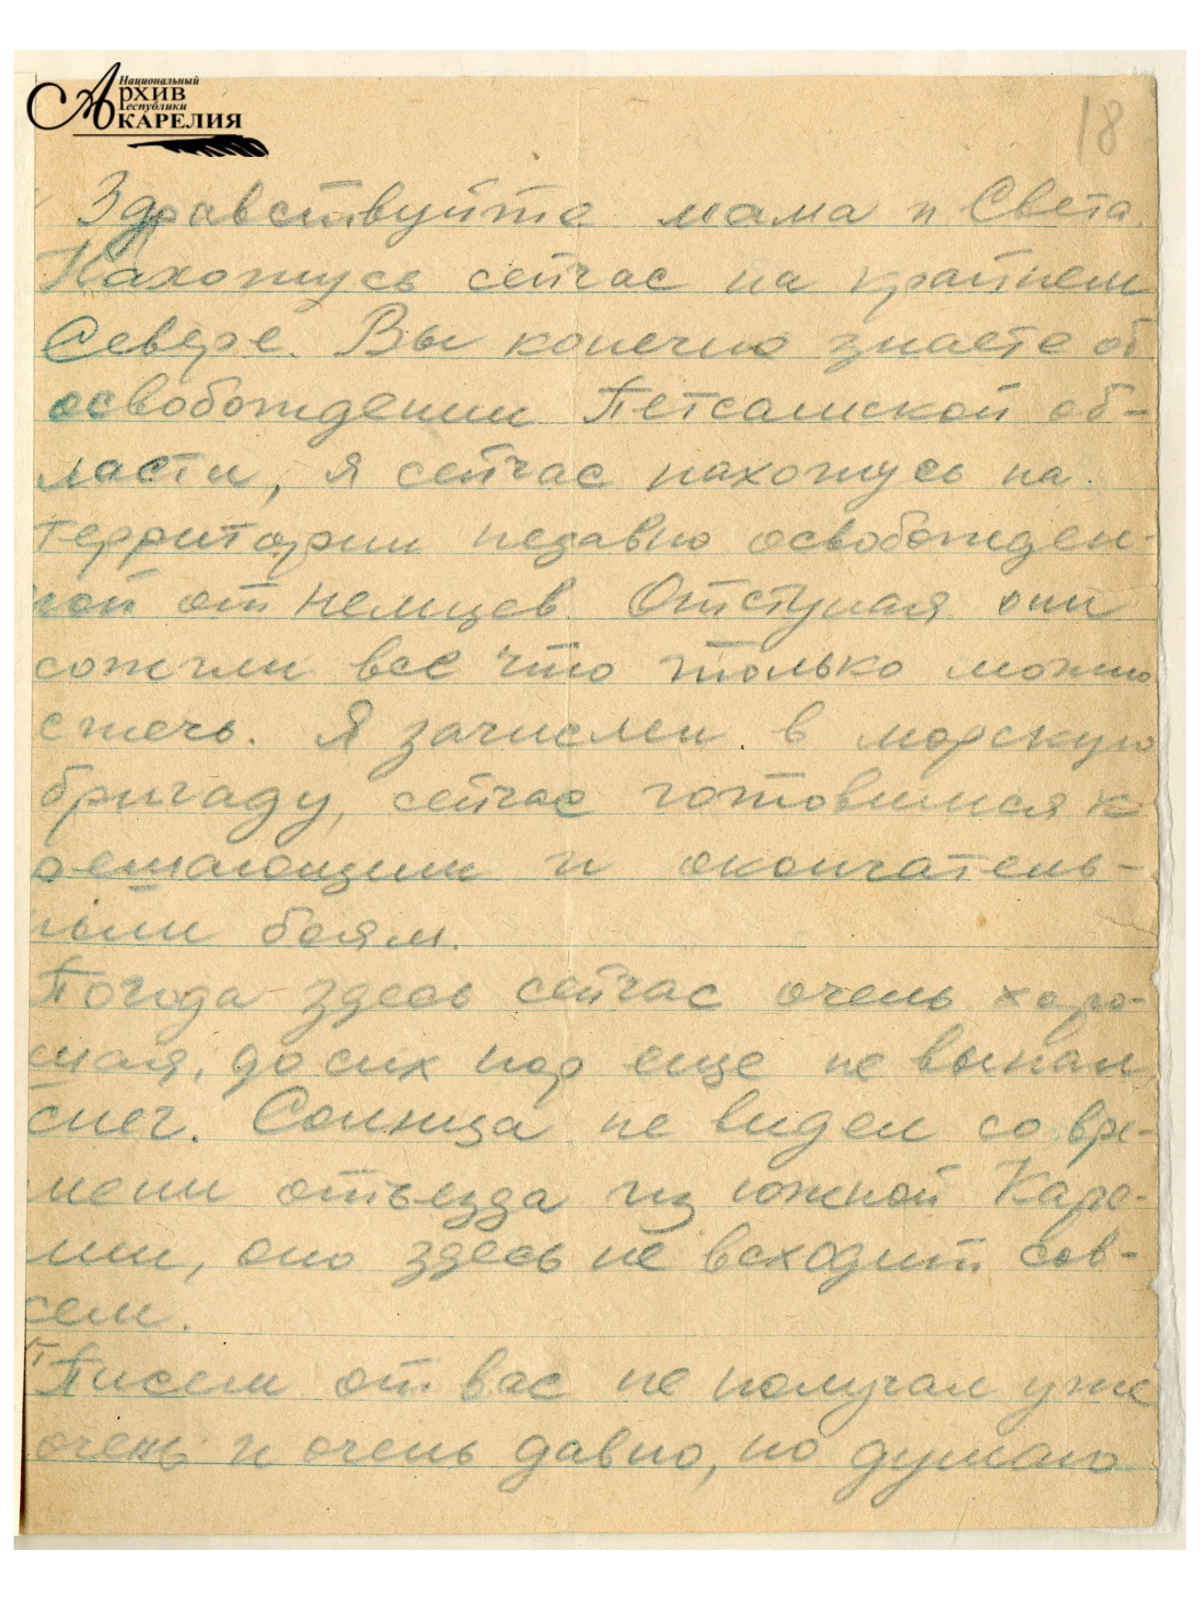 Национальный
Архив
Республики
КАРЕЛИЯ
18
Здравствуйте мама и Света.
Нахожусь сейчас на крайнем
Севере. Вы конечно знаете об
освобождении Петсамской об-
ласти, я сейчас нахожусь на
территории недавно освобожден-
ной от немцев. Отступая они
сожгли все что только можно
сжечь. Я зачислен в морскую
бригаду, сейчас готовимся к
решающим и окончатель-
ным боям.
Погода здесь сейчас очень хоро-
шая, до сих пор еще не выпал
снег. Солнца не видел со вре-
мени отъезда из южной Каре-
лии, оно здесь не всходит сов-
сем.
Писем от вас не получал уже
очень и очень давно, но думаю